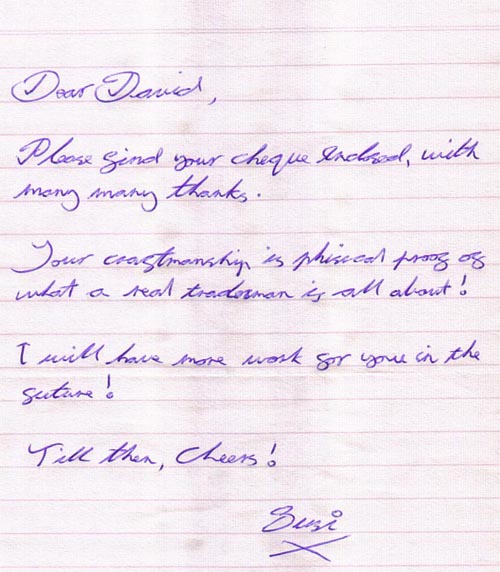 Dear David,
Please find your cheque enclosed, with
many many thanks.
Your craftmanship is phisical proof of
what a real tradesman is all about!
I will have more work for you in the
future!
Till then, Cheers!
Susi
X